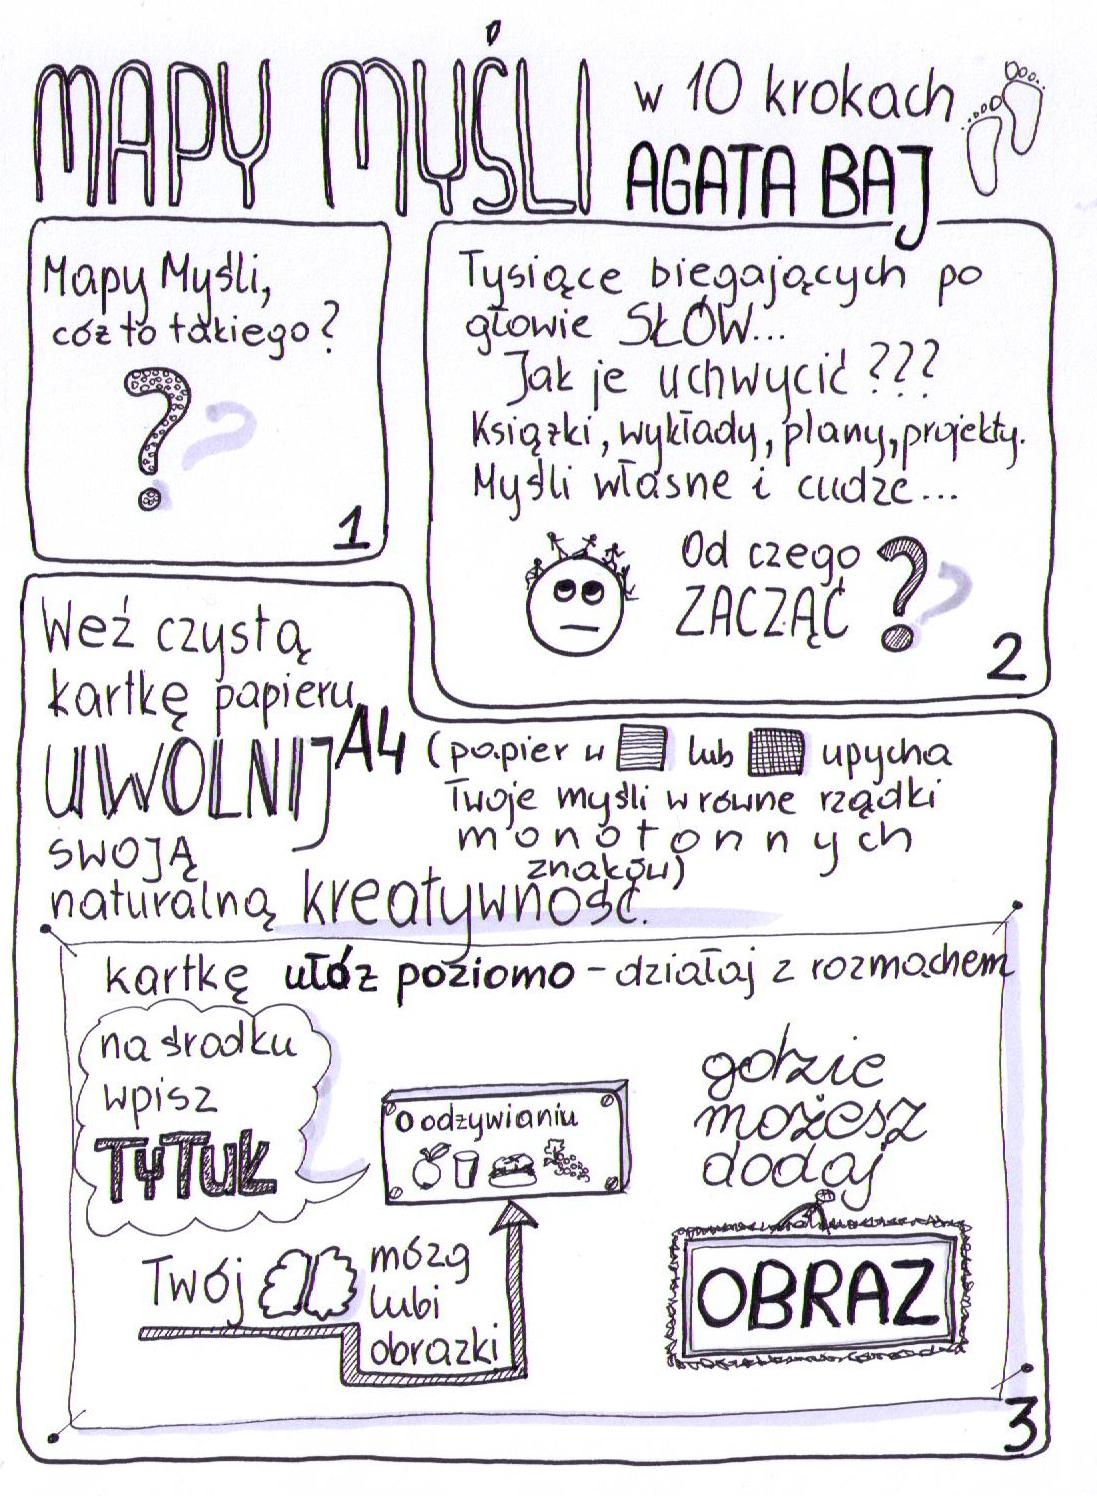 MAPY MYŚLI w 10 krokach
AGATA BAJ
Mapy Myśli,
cóż to takiego?
?
1
Tysiące biegających po
głowie SŁÓW...
Jak je uchwycić???
Książki, wykłady, plany, projekty.
Myśli własne i cudze...
Od czego
ZACZĄĆ ?
2
Weź czystą
kartkę papieru A4
UWOLNIJ
swoją
naturalną kreatywność.
(papier w lub upycha
Twoje myśli w równe rządki
monotonnych
znaków)
kartkę ułóż poziomo - działaj z rozmachem
na środku
wpisz
TYTUŁ
O odżywianiu
gdzie
możesz
dodaj
OBRAZ
Twój mózg
lubi
obrazki
3